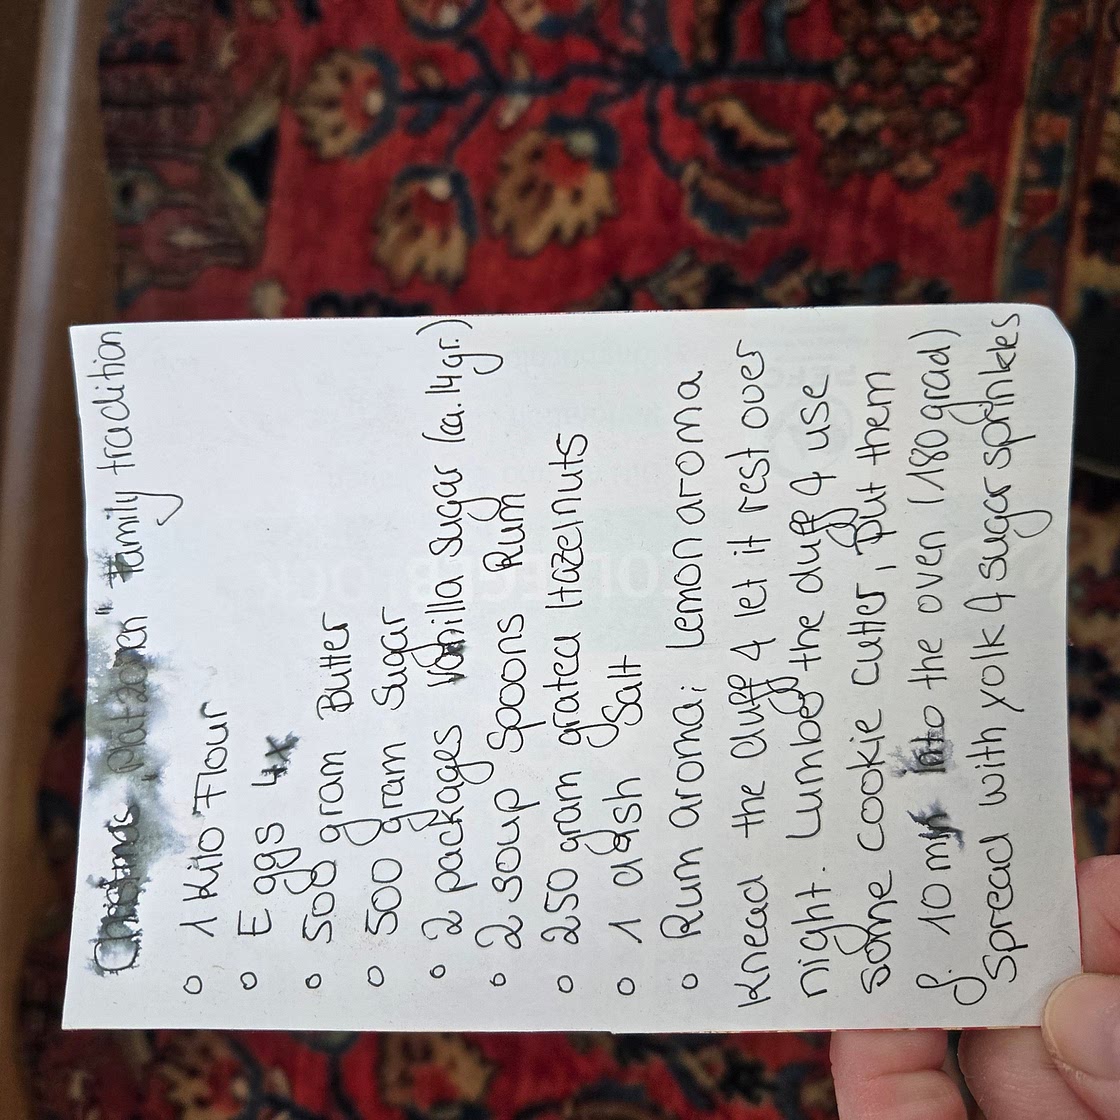 Christmas "Platzager" family tradition
o 1 Kilo Flour
o Eggs 4x
o 500 gram Butter
o 500 gram Sugar
o 2 packages Vanilla Sugar (ca. 14gr.)
o 2 soup Spoons Rum
o 250 gram grated Hazelnuts
o 1 dash Salt
o Rum aroma; Lemon aroma
Knead the duff & let it rest over
night. Lumber the duff & use
some cookie cutter, put them
f. 10 min into the oven (180 grad)
Spread with yolk & sugar sprinkles